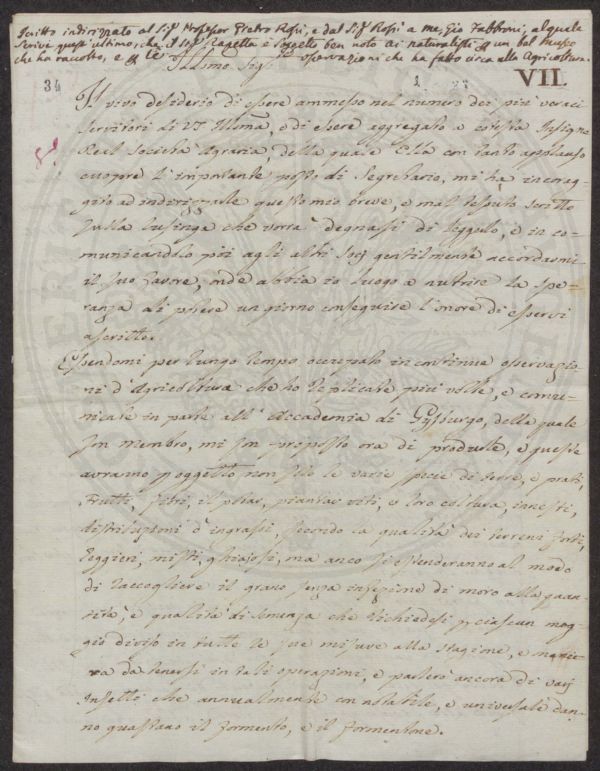 Scritto indirizzato al Sig.r Profesor Pietro Rossi, e dal Sig.r Rossi a me, Gio Fabbroni, al quale
scrive quest'ultimo, che il soggetto è ben noto ai naturalisti un bel Museo
che ha raccolto, e osservazioni che ha fatto circa alla Agricoltura.
VII.
34 1
Il vivo desiderio di essere ammesso nel numero dei più veraci
servitori di VS Illma, e di essere aggregato a cotesta Insigne
Real Società Agraria, della quale Ella con tanto applauso
cuopre l'importante posto di Segretario, mi ha incorag-
gito ad indirizzarle questo mio breve, e mal tessuto scritto
sulla lusinga che vorrà degnarsi di leggerlo, e in co-
municandolo poi agli altri Socj gentilmente accordarmi
il suo favore, onde abbia io luogo a nutrire la spe-
ranza di potere un giorno conseguire l'onore di esservi
ascritto.
Essendomi per lungo tempo occupato in continue osservazio-
ni d'Agricoltura che ho replicate più volte, e comu-
nicate in parte all'Accademia di della quale
son membro, mi son proposto ora di produrle, e queste
avranno p oggetto non solo le varie specie di terre, e prati,
frutti, piantar viti, e loro coltura, innesti,
distribuzioni d'ingrassi, secondo la qualità dei terreni forti,
leggieri, misti, ghiajosi, ma anco si estenderanno al modo
di raccogliere il grano senza infezione di moro alla quan-
tità, e qualità di semenza che richiedesi p ciascun mog-
gio diviso in tutte le sue misure alla stagione, e manie-
ra da tenersi in tali operazioni, e parlerò ancora di varj
Insetti che annualmente con notabile, e universale dan-
no guastano il formento, e il formentone.